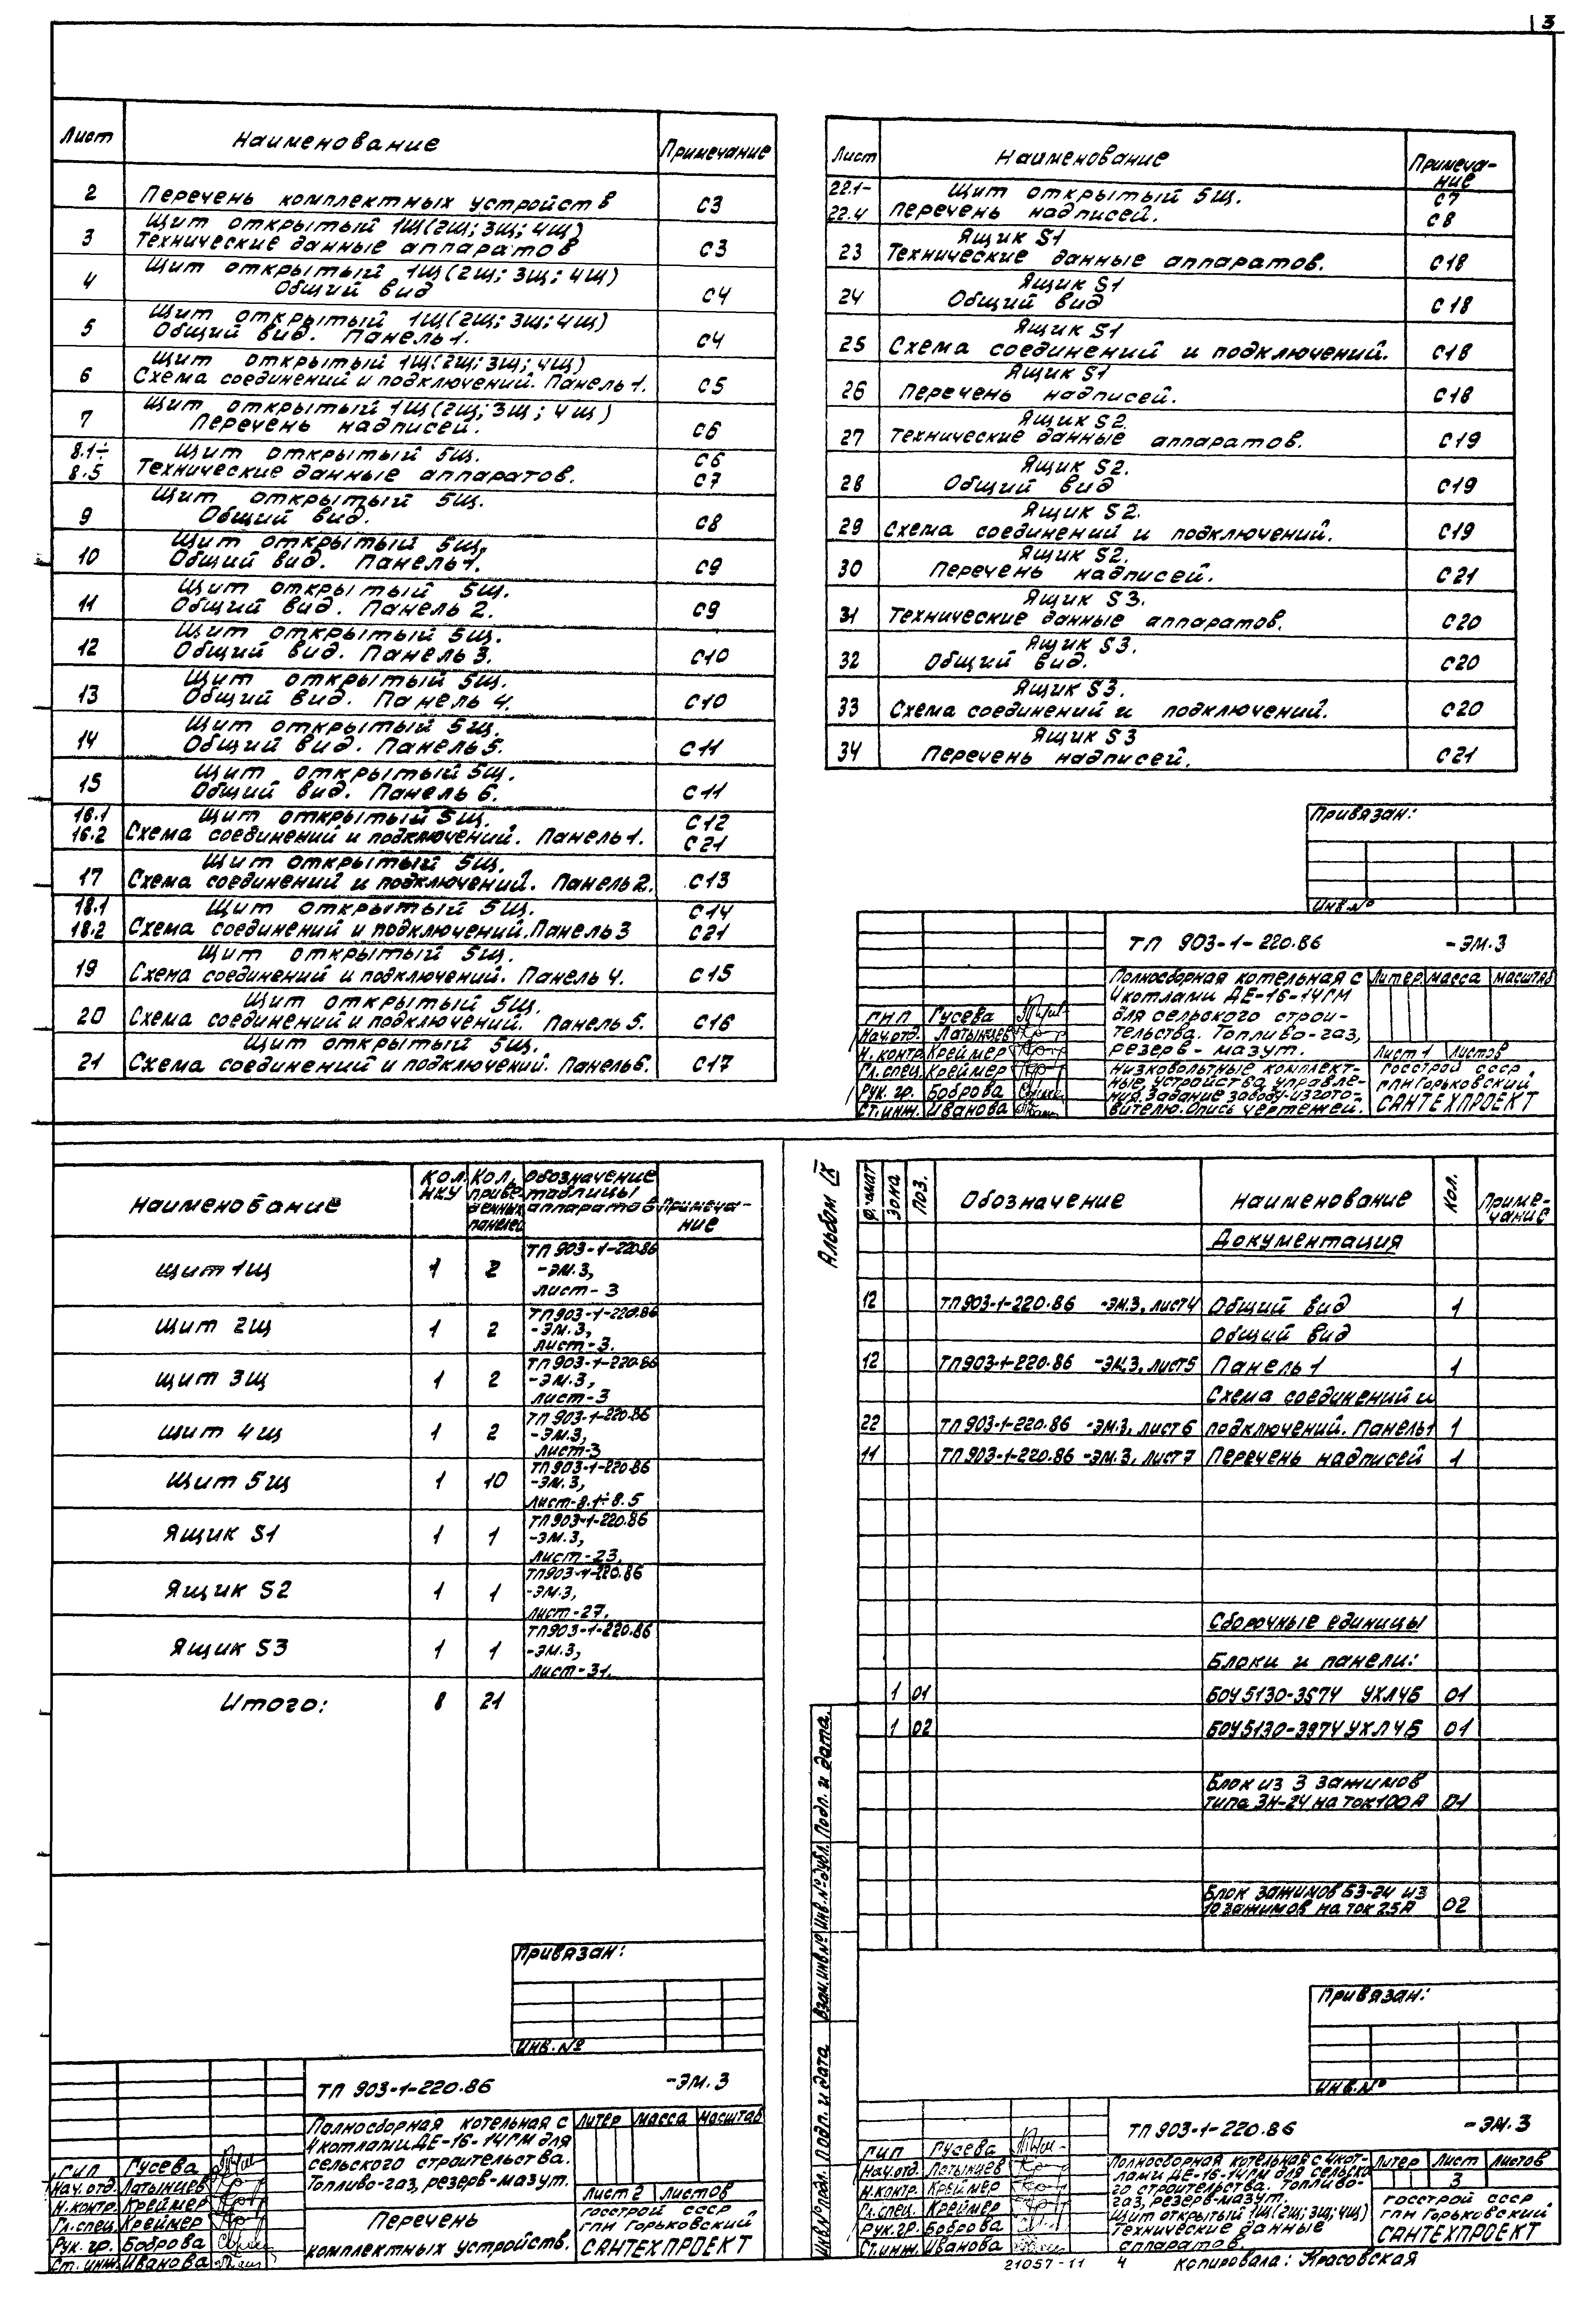 3
Лист Наименование Примечание
2 Перечень комплектных устройств С3
Щит открытый 1Щ(2Щ; 3Щ; 4Щ)
3 Технические данные аппаратов С3
Щит открытый 1Щ(2Щ; 3Щ; 4Щ)
4 Общий вид С4
Щит открытый 1Щ(2Щ; 3Щ; 4Щ)
5 Общий вид. Панель 1. С4
Щит открытый 1Щ(2Щ; 3Щ; 4Щ)
6 Схема соединений и подключений. Панель 1. С5
Щит открытый 1Щ(2Щ; 3Щ; 4Щ)
7 Перечень надписей. С6
8.1÷ Щит открытый 5Щ. С6
8.5 Технические данные аппаратов. С7
Щит открытый 5Щ.
9 Общий вид. С8
Щит открытый 5Щ.
10 Общий вид. Панель 1. С9
Щит открытый 5Щ.
11 Общий вид. Панель 2. С9
Щит открытый 5Щ.
12 Общий вид. Панель 3. С10
Щит открытый 5Щ.
13 Общий вид. Панель 4. С10
Щит открытый 5Щ.
14 Общий вид. Панель 5. С11
Щит открытый 5Щ.
15 Общий вид. Панель 6. С11
16.1 Щит открытый 5Щ. С12
16.2 Схема соединений и подключений. Панель 1. С21
Щит открытый 5Щ.
17 Схема соединений и подключений. Панель 2. С13
18.1 Щит открытый 5Щ. С14
18.2 Схема соединений и подключений. Панель 3 С21
Щит открытый 5Щ.
19 Схема соединений и подключений. Панель 4. С15
Щит открытый 5Щ.
20 Схема соединений и подключений. Панель 5. С16
Щит открытый 5Щ.
21 Схема соединений и подключений. Панель 6. С17
Лист Наименование Примеча-
ние
22.1- Щит открытый 5Щ. С7
22.4 Перечень надписей. С8
Ящик S1
23 Технические данные аппаратов. С18
Ящик S1
24 Общий вид С18
Ящик S1
25 Схема соединений и подключений. С18
Ящик S1
26 Перечень надписей. С18
Ящик S2.
27 Технические данные аппаратов. С19
Ящик S2.
28 Общий вид С19
Ящик S2.
29 Схема соединений и подключений. С19
Ящик S2.
30 Перечень надписей. С21
Ящик S3.
31 Технические данные аппаратов. С20
Ящик S3.
32 Общий вид. С20
Ящик S3.
33 Схема соединений и подключений. С20
Ящик S3
34 Перечень надписей. С21
Привязан:
Инв.№
ТП 903-1-220.86 -ЭМ.3
Полносборная котельная с
4 котлами ДЕ-16-14ГМ
для сельского строи-
тельства. Топливо-газ,
резерв-мазут.
Литер масса масштаб
Лист 1 Листов
ГИП Гусева
Нач.отд. Латынцев
Н.контр. Креймер
Гл.спец. Креймер
Рук. гр. Боброва
Ст.инж. Иванова
Низковольтные комплект-
ные устройства управле-
ния. Задание заводу-изгото-
вителю. Опись чертежей.
Госстрой СССР
ГПИ Горьковский
САНТЕХПРОЕКТ
Наименование Кол. НКУ Кол. приве-денных панелей Обозначение таблицы аппаратов Примеча-ние
Щит 1Щ 1 2 ТП 903-1-220.86
-ЭМ.3,
лист-3
Щит 2Щ 1 2 ТП 903-1-220.86
-ЭМ.3,
лист-3.
Щит 3Щ 1 2 ТП 903-1-220.86
-ЭМ.3,
лист-3
Щит 4Щ 1 2 ТП 903-1-220.86
-ЭМ.3,
лист-3
Щит 5Щ 1 10 ТП 903-1-220.86
-ЭМ.3,
лист-8.1÷8.5
Ящик S1 1 1 ТП 903-1-220.86
-ЭМ.3,
лист-23.
Ящик S2 1 1 ТП 903-1-220.86
-ЭМ.3,
лист-27.
Ящик S3 1 1 ТП 903-1-220.86
-ЭМ.3,
лист-31.
Итого: 8 21
Привязан:
Инв.№
ТП 903-1-220.86 -ЭМ.3
Полносборная котельная с
4 котлами ДЕ-16-14ГМ для
сельского строительства.
Топливо-газ, резерв-мазут.
Литер масса масштаб
Лист 2 Листов
ГИП Гусева
Нач.отд. Латынцев
Н.контр. Креймер
Гл.спец. Креймер
Рук. гр. Боброва
Ст.инж. Иванова
Перечень
комплектных устройств.
Госстрой СССР
ГПИ Горьковский
САНТЕХПРОЕКТ
Альбом IX
Формат Зона Поз. Обозначение Наименование Кол. Приме-чание
Документация
12 ТП 903-1-220.86 -ЭМ.3, лист 4 Общий вид 1
Общий вид
12 ТП 903-1-220.86 -ЭМ.3, лист 5 Панель 1 1
Схема соединений и
22 ТП 903-1-220.86 -ЭМ.3, лист 6 подключений. Панель 1 1
11 ТП 903-1-220.86 -ЭМ.3, лист 7 Перечень надписей 1
Сборочные единицы
Блоки и панели:
1 01 БОУ5130-3574 УХЛ4Б 01
1 02 БОУ5130-3974 УХЛ4Б 01
Блок из 3 зажимов
типа ЗН-24 на ток 100А 01
Блок зажимов БЗ-24 из
10 зажимов на ток 25А 02
Инв.№ подл. Подп. и дата Взам.инв.№ Инв.№ дубл. Подп. и дата.
Привязан:
Инв.№
ТП 903-1-220.86 -ЭМ.3
Полносборная котельная с 4 кот-
лами ДЕ-16-14ГМ для сельско-
го строительства. Топливо-
газ, резерв-мазут.
Щит открытый 1Щ(2Щ; 3Щ; 4Щ)
Технические данные
аппаратов.
Литер Лист Листов
3
ГИП Гусева
Нач.отд. Латынцев
Н.контр. Креймер
Гл.спец. Креймер
Рук. гр. Боброва
Ст.инж. Иванова
Госстрой СССР
ГПИ Горьковский
САНТЕХПРОЕКТ
21057-11 4 Копировала: Красовская